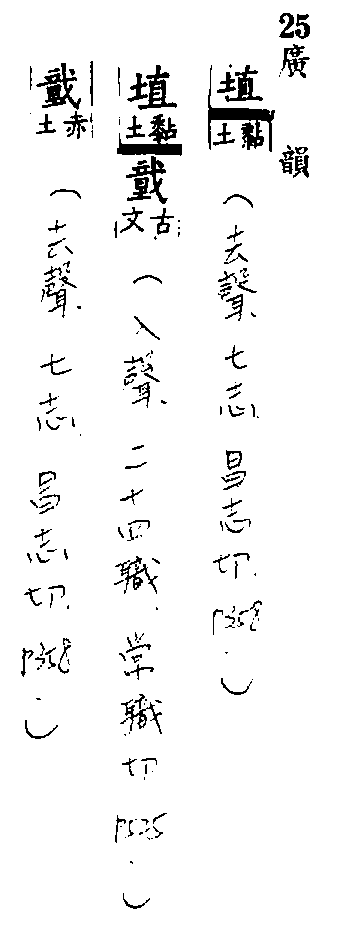 25 廣韻
埴黏土(去聲.七志.昌志切.p358.)
埴黏土䵊古文(入聲.二十四職.常職切p525.)
䵊赤土(去聲.七志.昌志切.p358.)